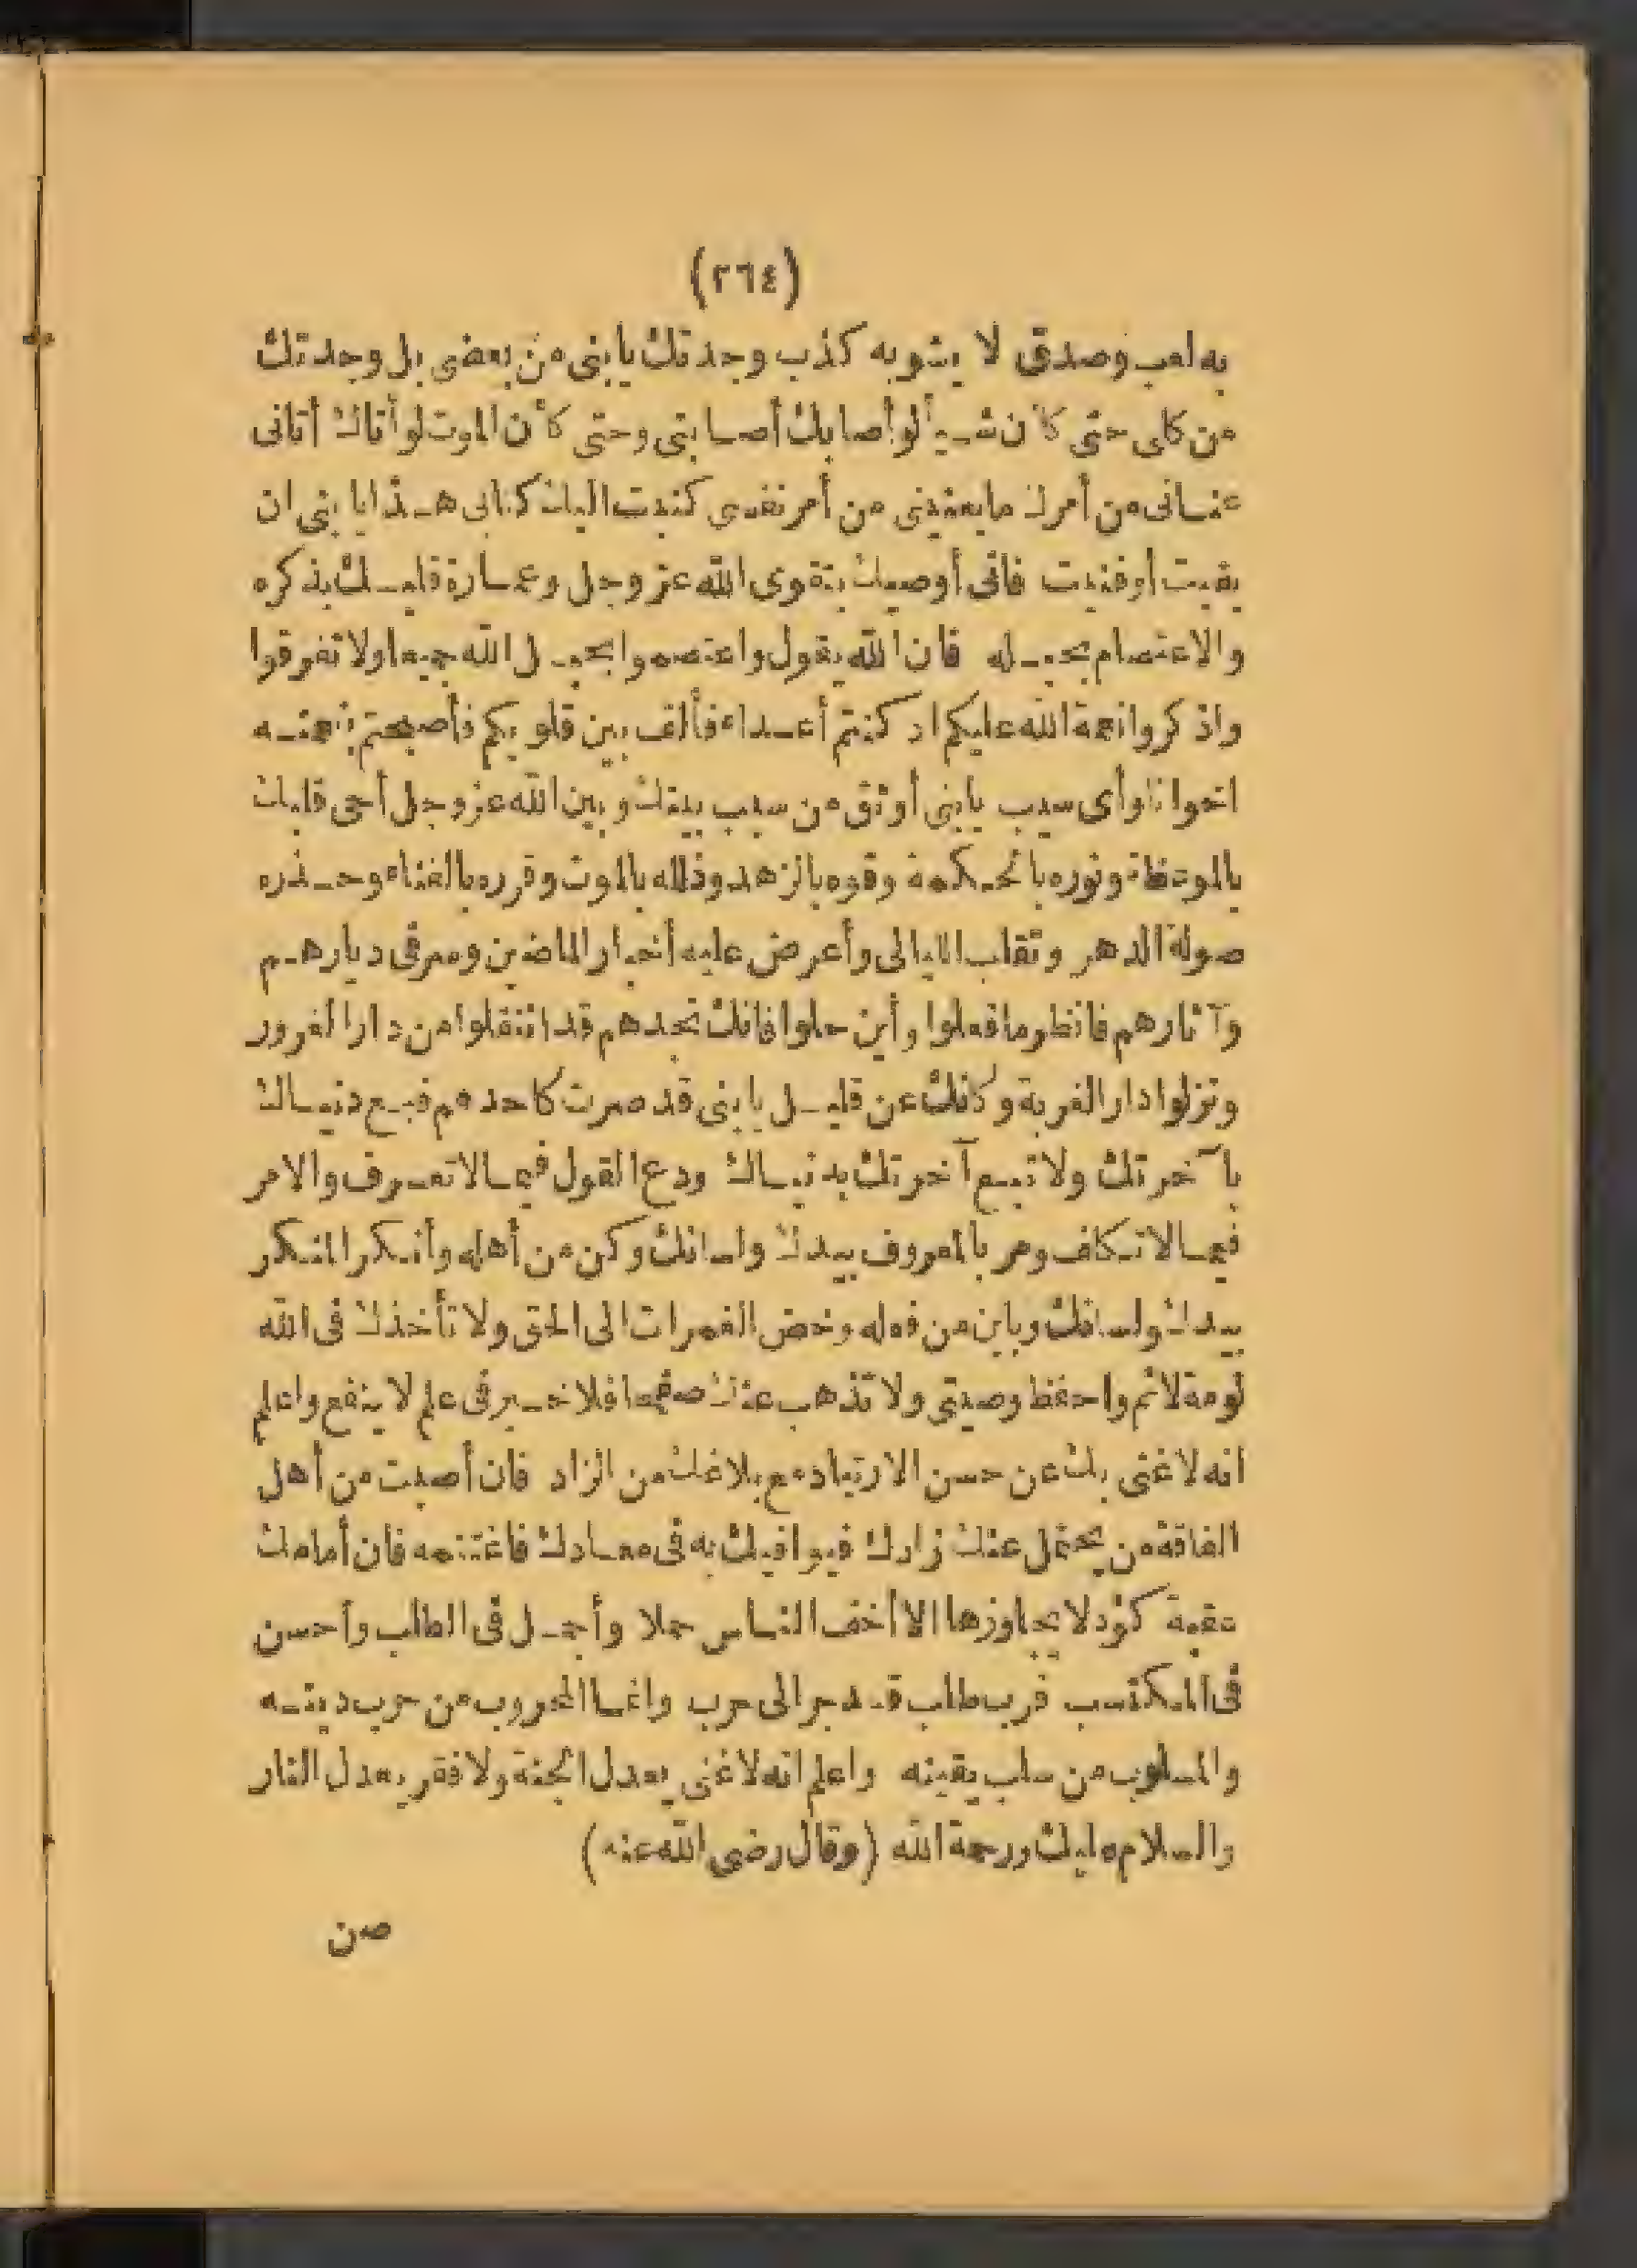 (٢٦٤)
به لعب وصدق لا يشوبه كذب وجدتك يا بنى من بعضى بل وجدتك
من كلى حتى كأن شيأ لو أصابك أصابتى وحتى كأن الموت لو أتاك أتانى
عنانى من أمرك ما يعنينى من أمر نفسى كتبت اليك كتابى هذا يا بنى ان
بقيت أو فنيت فانى أوصيك بتقوى الله عز وجل وعمارة قلبك بذكره
والاعتصام بحبله فان الله يقول واعتصموا بحبل الله جميعا ولا تفرقوا
واذكروا نعمة الله عليكم اد كنتم أعداء فألف بين قلوبكم فأصبحتم بنعمته
اخوانا وأى سبب يا بنى أوثق من سبب بينك وبين الله عز وجل أحى قلبك
بالموعظة ونوره بالحكمة وقوه بالزهد وذلله بالموت وقرره بالفناء وحذره
صولة الدهر وتقلب الليالى وأعرض عليه أخبار الماضين وسر فى ديارهم
وآثارهم فانظر ما فعلوا وأين حلوا فانك تجدهم قد انتقلوا من دار الغرور
ونزلوا دار الغربة وكأنك عن قليل يا بنى قد صرت كاحدهم فبع دنياك
بآخرتك ولا تبع آخرتك بدنياك ودع القول فيما لا تعرف والامر
فيما لا تكلف ومر بالمعروف بيدك ولسانك وكن من أهله وأنكر المنكر
بيدك ولسانك وباين من فعله وخض الغمرات الى الحق ولا تأخذك فى الله
لومة لائم واحفظ وصيتى ولا تذهب عنك صفحا فلا خير فى علم لا ينفع واعلم
انه لا غنى بك عن حسن الارتياد مع بلاغك من الزاد فان أصبت من أهل
الفاقة من يحتمل عنك زادك فيوافيك به فى معادك فاغتنمه فان أمامك
عقبة كؤد لا يجاوزها الا أخف الناس حملا وأجمل فى الطلب وأحسن
فى المكتسب فرب طلب قد جر الى حرب وانما المحروب من حرب دينه
والمسلوب من سلب يقينه واعلم انه لا غنى يعدل الجنة ولا فقر يعدل النار
والسلام عليك ورحمة الله (وقال رضى الله عنه)
من